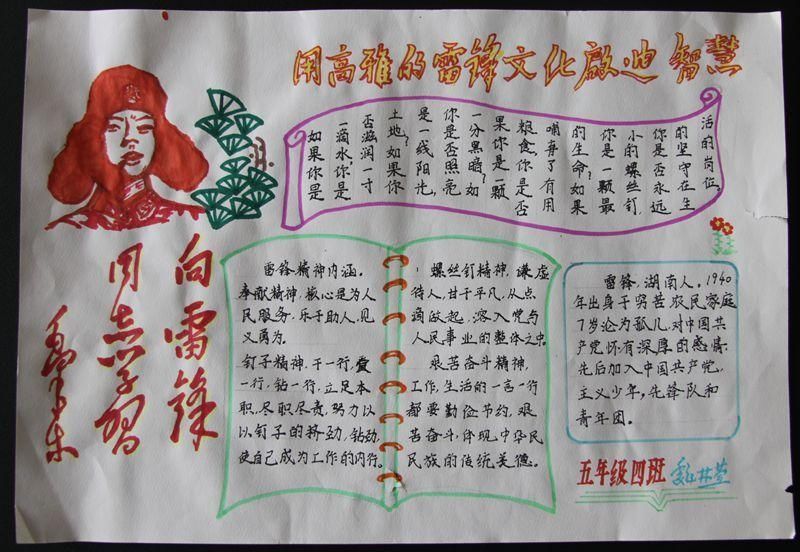 用高雅的雷锋文化啟迪智慧
如果你是
一滴水，你是
否滋润一寸
土地？如果你
是一线阳光，
你是否照亮
一分黑暗？如
果你是一颗
粮食，你是否
哺育了有用
的生命？如果
你是一颗最
小的螺丝钉，
你是否永远
的坚守在生
活的岗位
向雷锋
同志学习
毛泽东
雷锋精神内涵。
奉献精神，核心是为人
民服务，乐于助人，见
义勇为。
钉子精神，干一行，爱
一行，钻一行，立足本
职，尽职尽责，努力以
以钉子的挤劲，钻劲，
使自己成为工作的内行。
螺丝钉精神，谦虚
待人，甘于平凡，从点
滴做起，溶入党与
人民事业的整体之中。
艰苦奋斗精神，
工作，生活的一言一行
都要勤俭节约，艰
苦奋斗，体现中华民
民族的传统美德。
雷锋，湖南人。1940
年出身于贫苦农民家庭
7岁沦为孤儿，对中国共
产党怀有深厚的感情，
先后加入中国共产党，
主义少年，先锋队和
青年团。
五年级四班